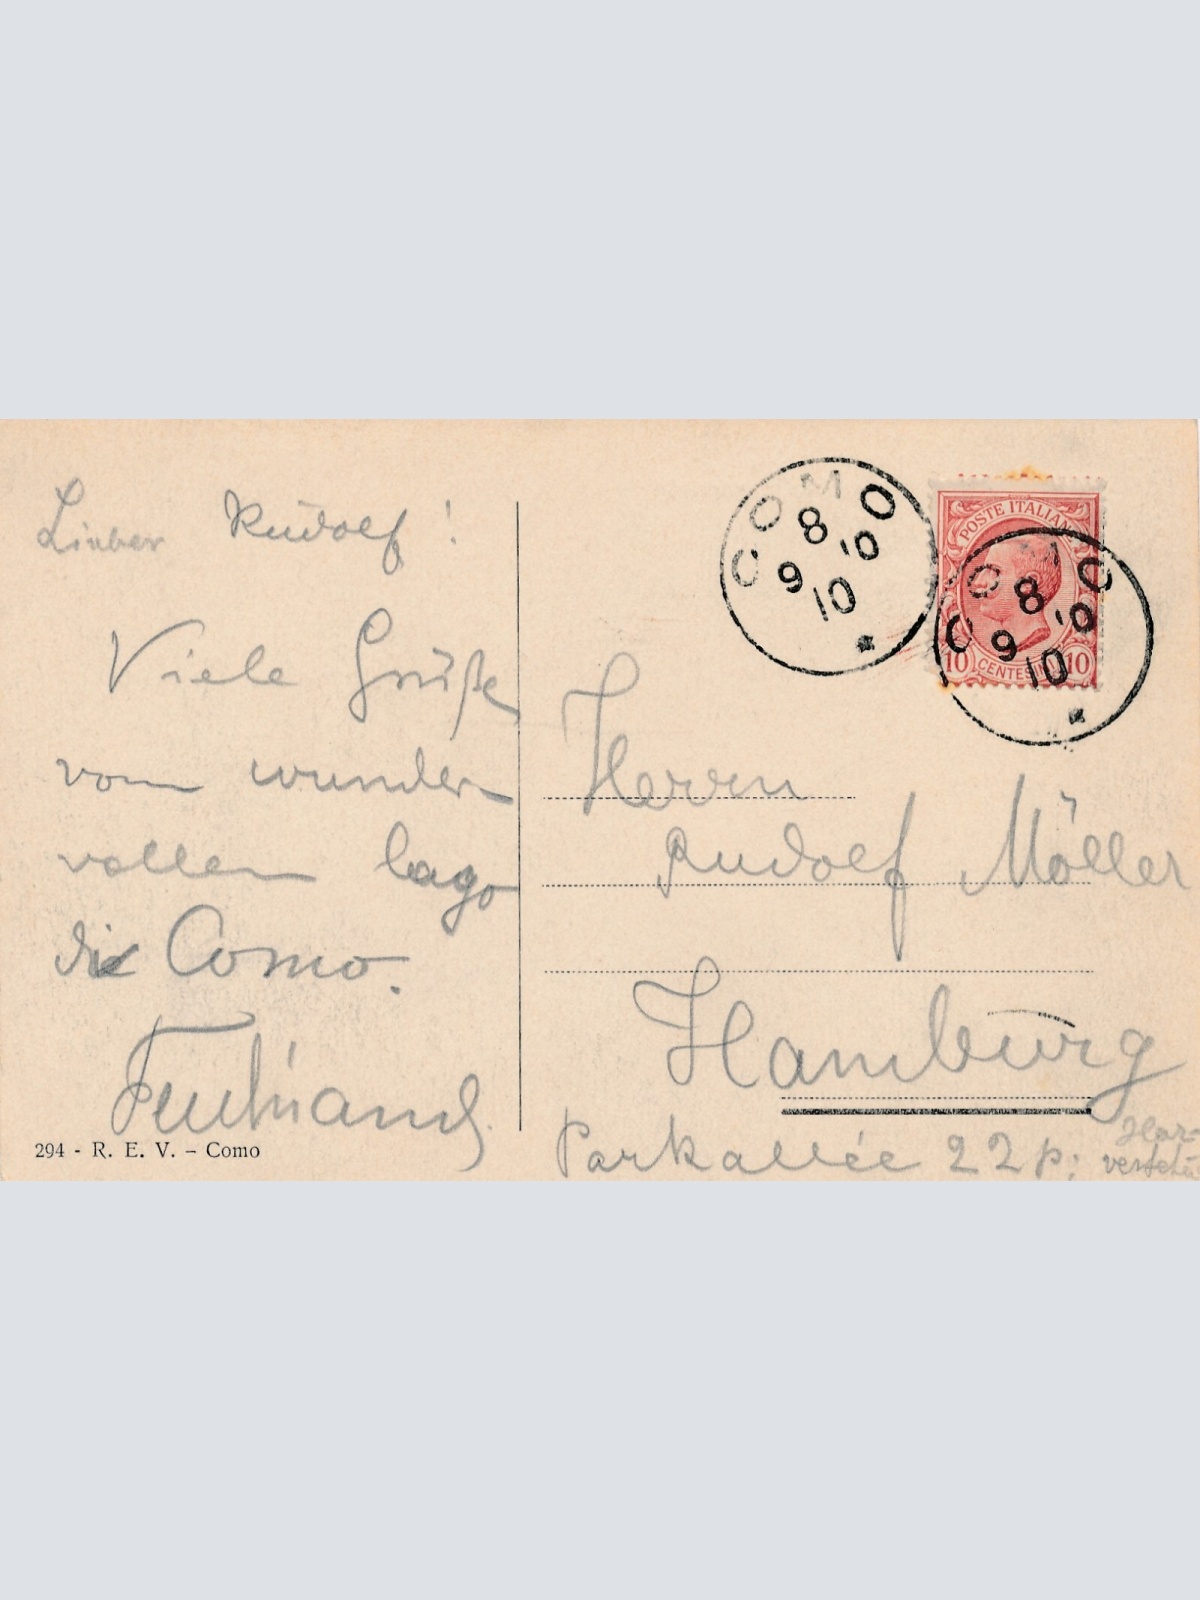 Lieber Rudolf!
Viele Grüße
vom wunder-
vollen lago
di Como.
Ferdinand.
294 - R. E. V. - Como
COMO
8
9 10
10
POSTE ITALIANE
COMO
8
9 10
10
10 CENTESIMI 10
Herrn
Rudolf Möller
Hamburg
Parkallée 22 p:
Har-